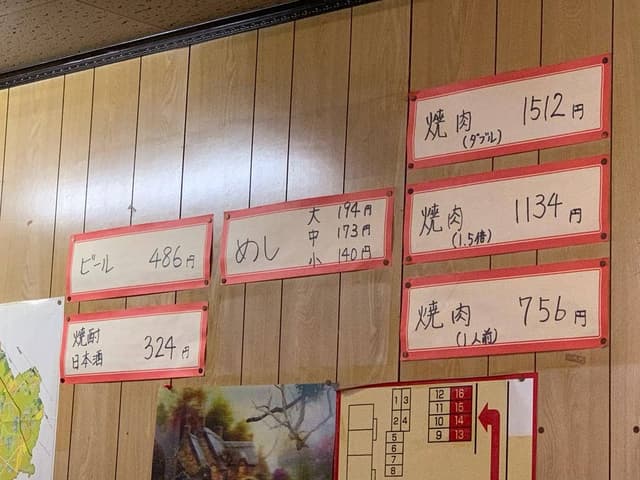 ビール 486円
焼酎
日本酒 324円
めし
大 194円
中 173円
小 140円
焼肉 1512円
(ダブル)
焼肉 1134円
(1.5倍)
焼肉 756円
(1人前)
1 3
2 4
5
6
7
8
12 16
11 15
10 14
9 13